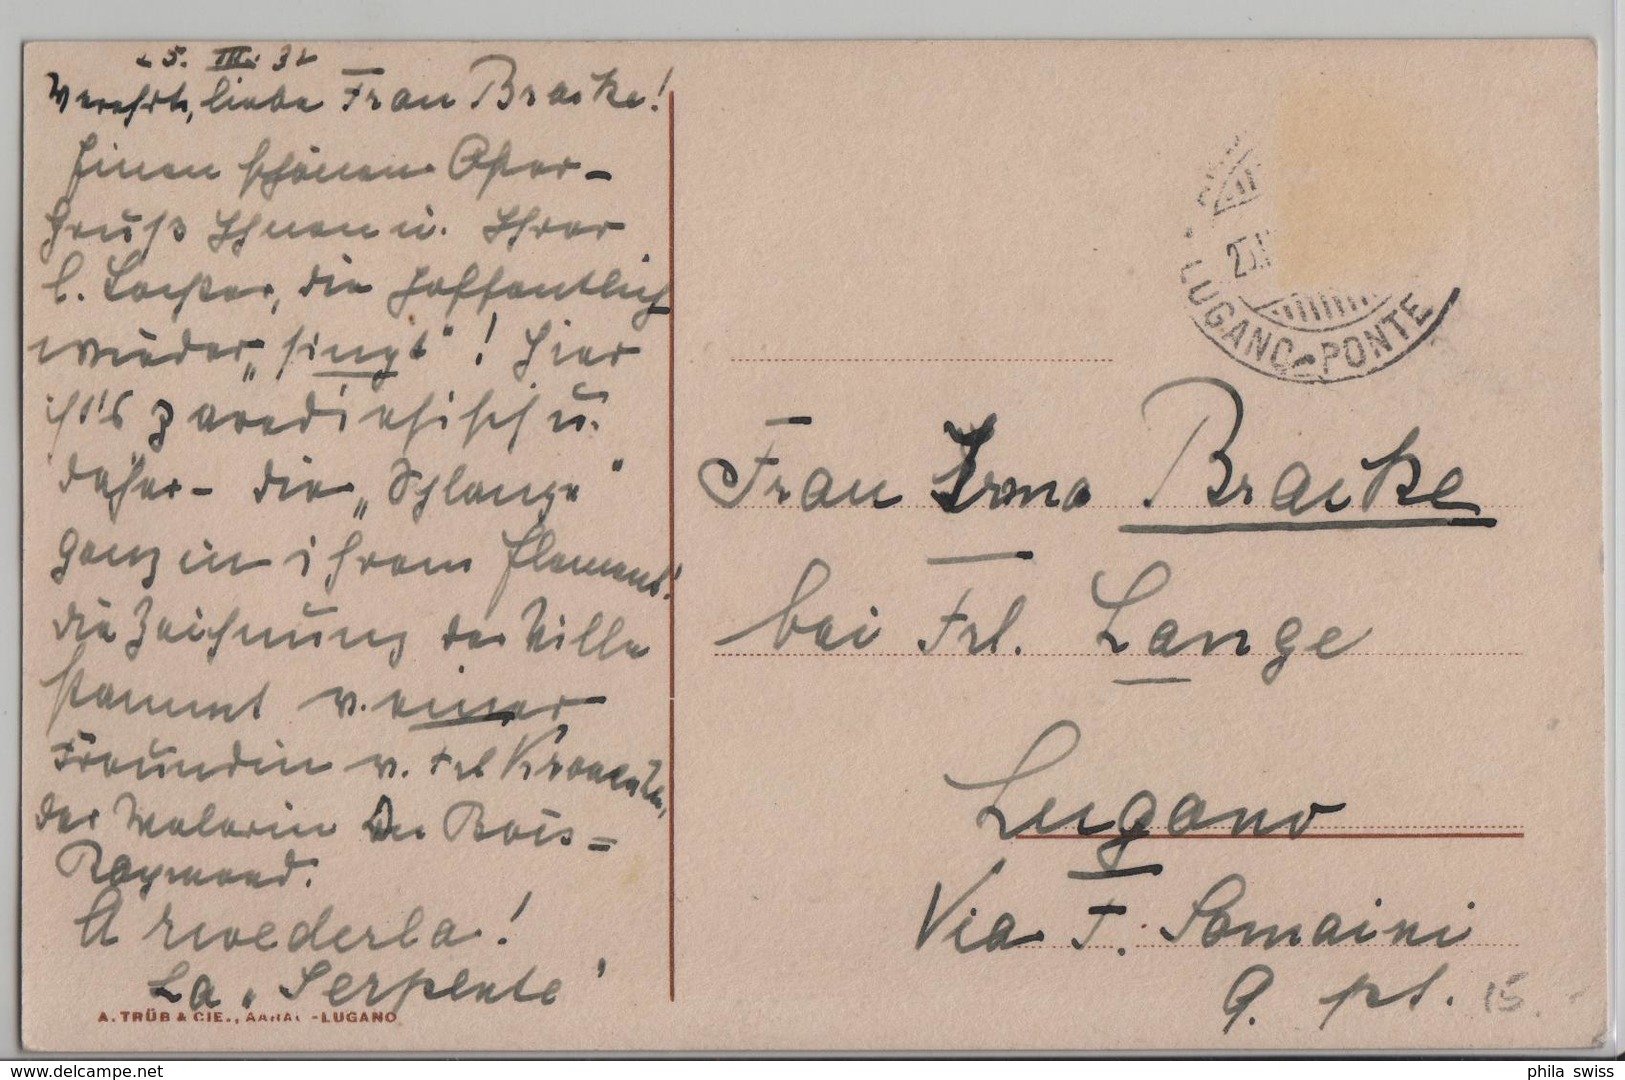 25. III. 32
Verehrte, liebe Frau Bracke!
Einen schönen Oster-
Gruß Ihnen u. Ihrer
l. Tochter, die hoffentlich
wieder „singt"! Hier
ist's paradiesisch u.
daher – die „Schlange"
ganz in ihrem Element!
die Zeichnung der Villa
stammt v. einer
Freundin v. Frl
der Malerin Du Bois=
Raymond.
A rivederla!
La „Serpente"
A. TRÜB & CIE., AARAU-LUGANO
LUGANO-PONTE
Frau Irma Bracke
bei Frl. Lange
Lugano
Via F. Somaini
9. pt.
15
delcampe.net
phila_swiss